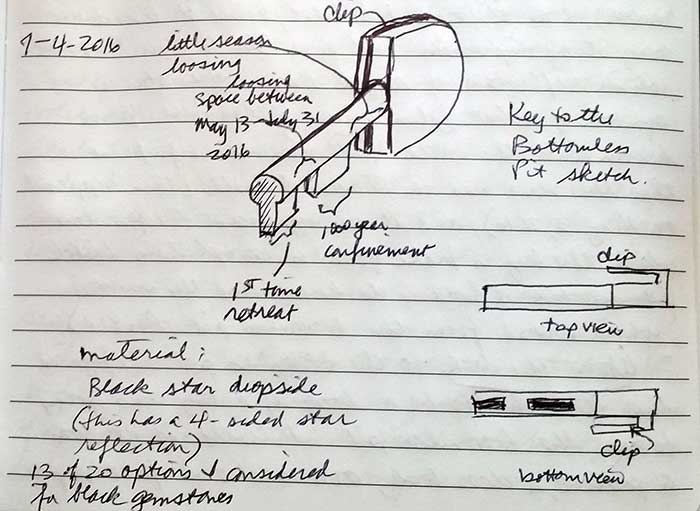 7-4-2016
little season
loosing
loosing
space between
May 13 - July 31
2016
clip
Key to the
Bottomless
Pit sketch.
1000 year
confinement
1ST time
retreat
clip
top view
clip
bottom view
material:
Black star diopside
(this has a 4-sided star
reflection)
13 of 20 options I considered
for black gemstones